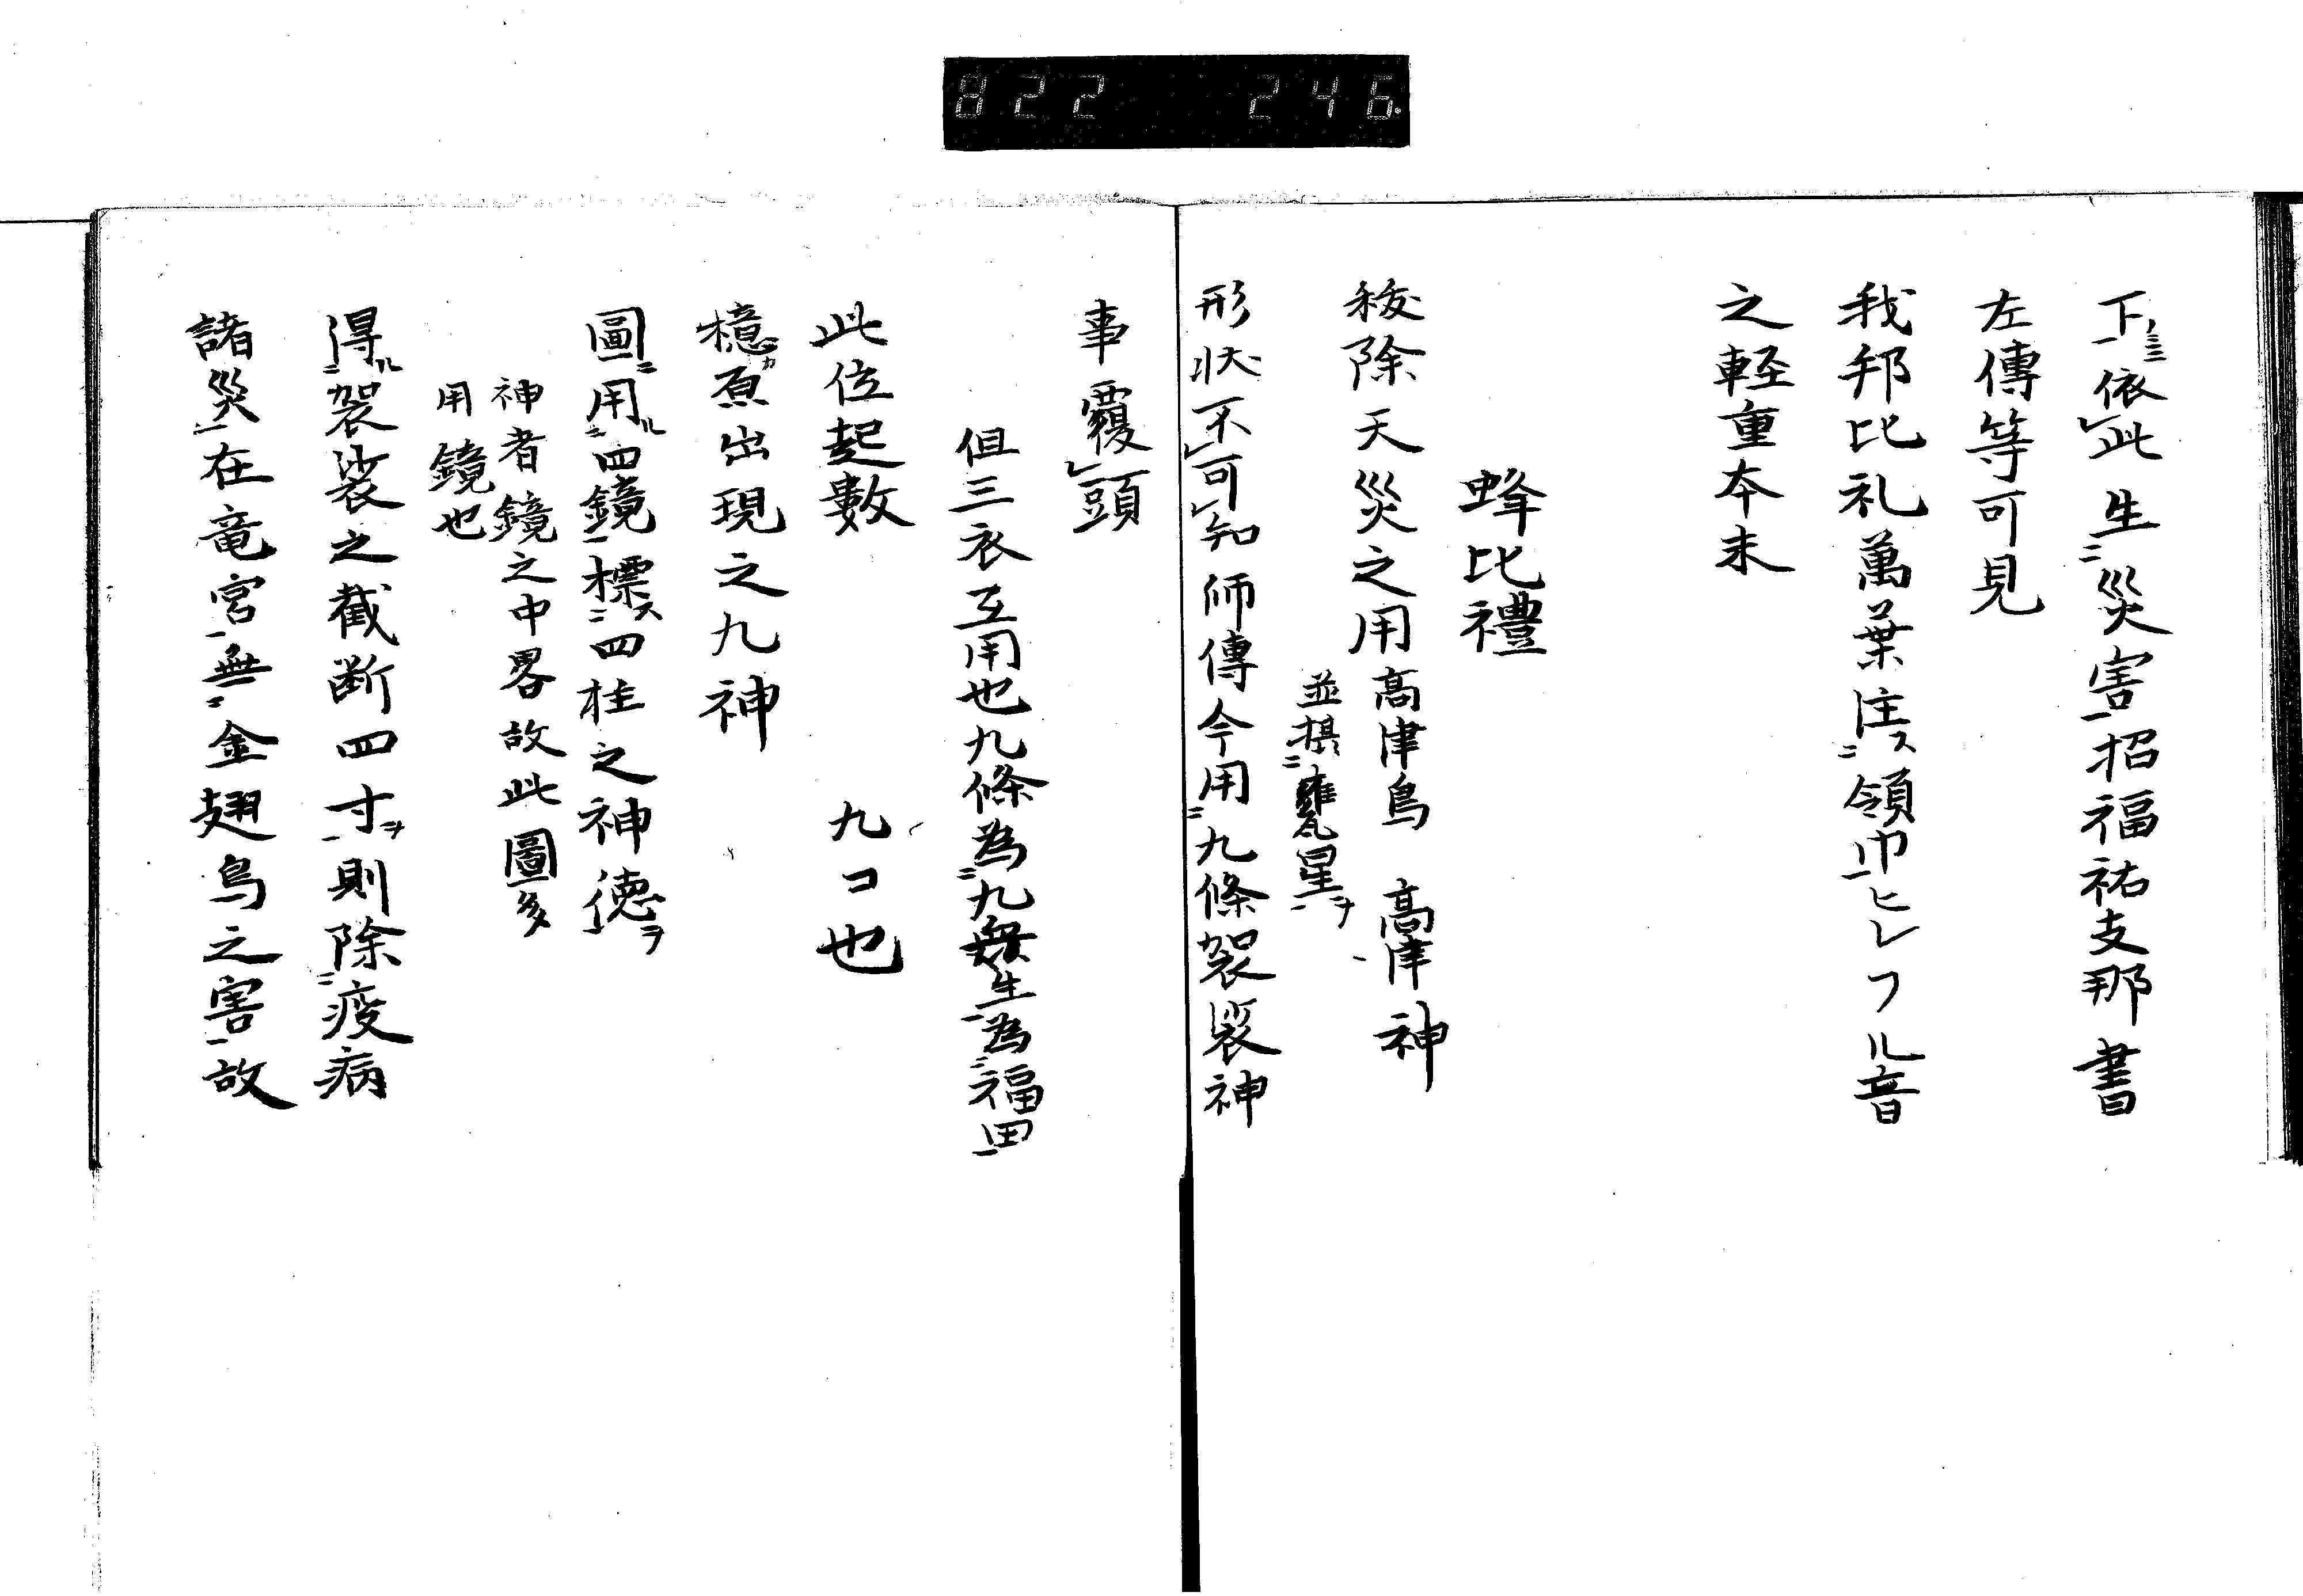 822 246
下依此生災害招福祐支那書
左傳等可見
我邦比礼萬葉注領巾ヒレフル音
之軽重本末
蜂比禮
秡除天災之用高津鳥 高津神
並摂甕星ヲ
形状不可知師傳今用九條袈裟神
事覆頭
但三衣互用也九條為九無生為福田
此位起數 九コ也
檍原出現之九神
圖用四鏡標四柱之神徳ヲ
神者鏡之中畧故此圖多
用鏡也
得袈裟之截断四寸ヲ則除疫病
諸災在竜宮無金翅鳥之害故